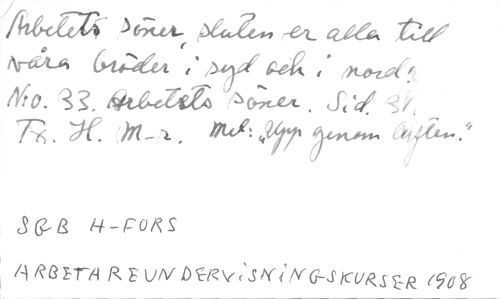 Arbetets söner, sluten er alla till
våra bröder i syd och i nord.
N:o. 33. Arbetets söner. Sid. 31.
Tx. H. M-r. Mel: "Upp genom luften."
SGB H-FORS
ARBETAREUNDERVISNINGSKURSER 1908